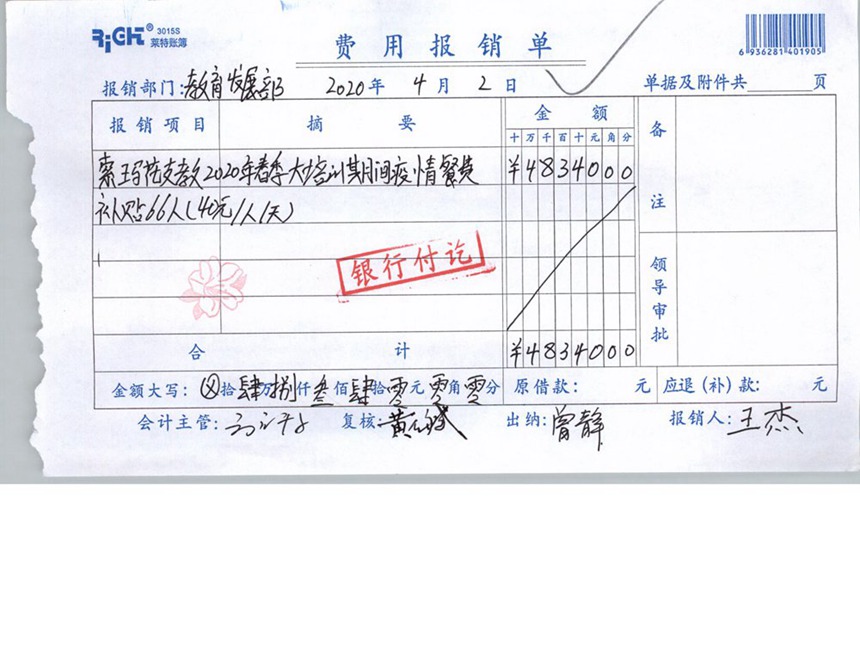 RiCH® 3015S
莱特账簿
费用报销单
6 936281 401905
报销部门:教育发展部 2020年 4月 2日 单据及附件共 页
报销项目 摘要 金额 备注
十万千百十元角分
索玛花支教2020年春季大山营训期间疫情餐费 ¥4834000
补贴66人(40元/人/天)
银行付讫
领导审批
合计 ¥4834000
金额大写: ⊗拾肆万捌仟叁佰肆拾零元零角零分 原借款: 元 应退(补)款: 元
会计主管: 复核: 黄 出纳: 曾静 报销人: 王杰